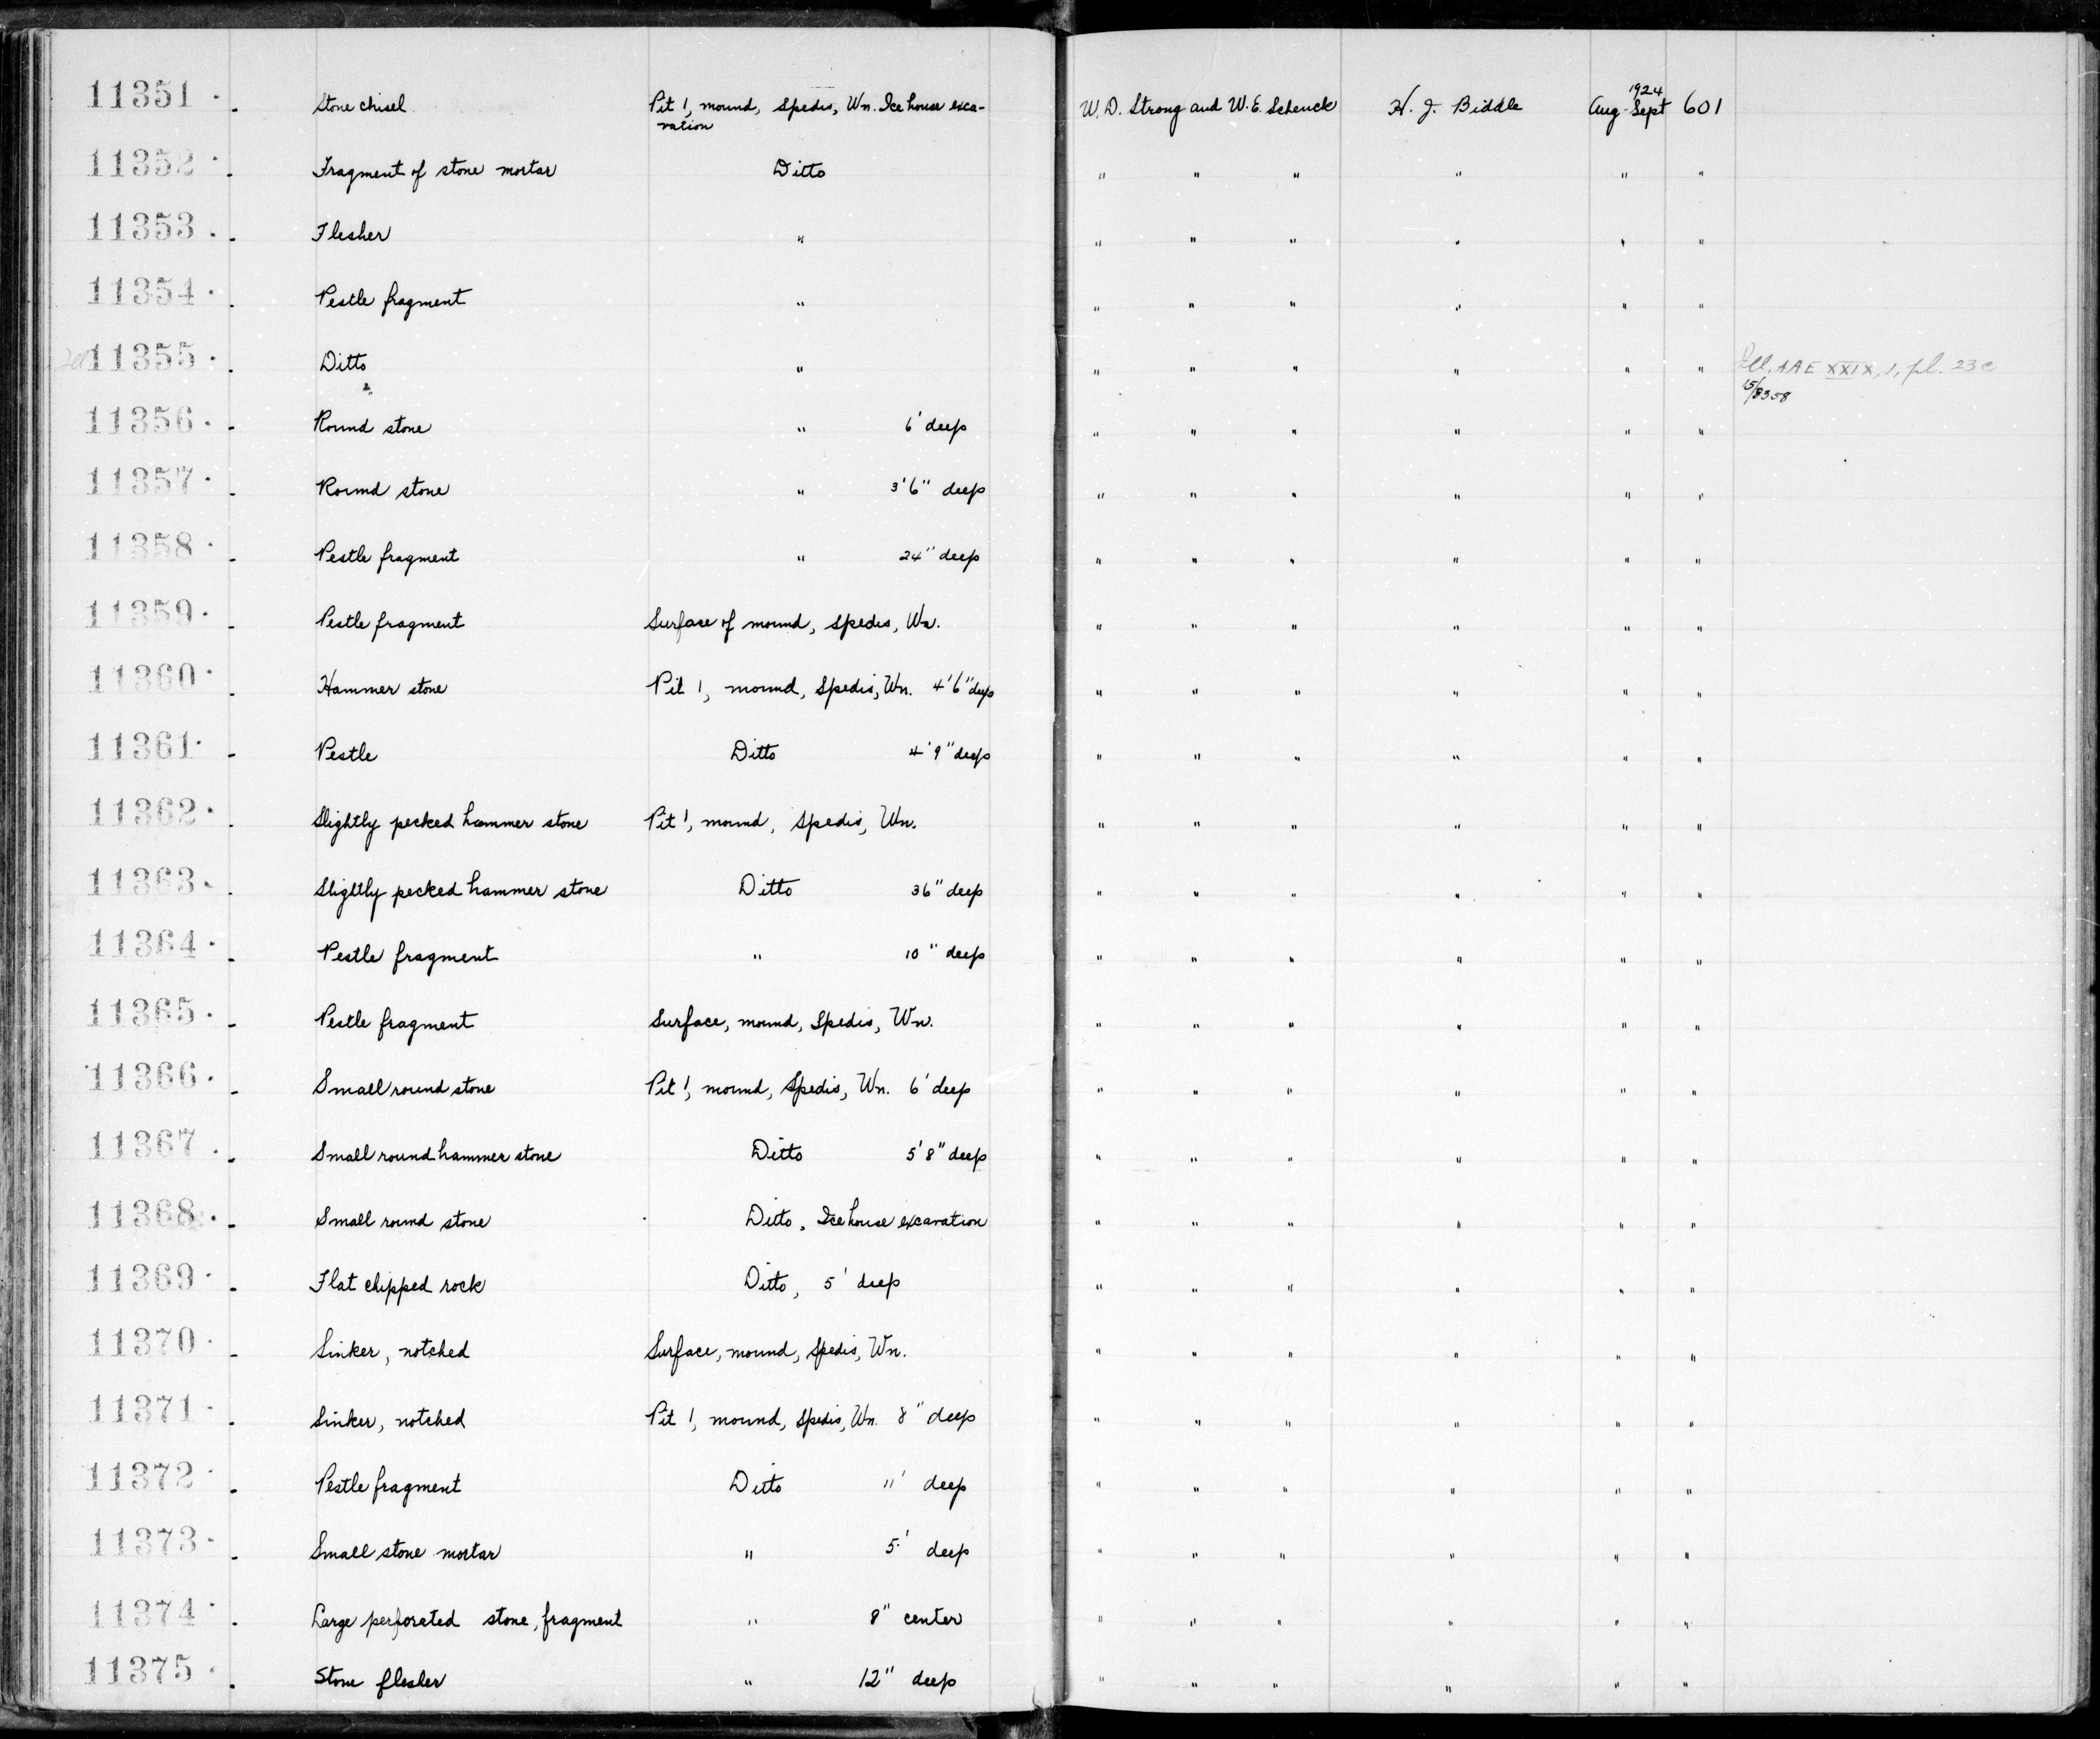 11351 · . Stone chisel Pit 1, mound, Spedis, Wn. Ice house exca- W. D. Strong and W. E. Schenck H. J. Biddle 1924 Aug-Sept 601
vation
11352 · . Fragment of stone mortar Ditto " " " " " "
11353 · . Flesher " " " " " " "
11354 · . Pestle fragment " " " " " " "
11355 · . Ditto " " " " " " " Ill. AAE XXIX, 1, pl. 23 c
15/8358
11356 · . Round stone " 6' deep " " " " " "
11357 · . Round stone " 3'6" deep " " " " " "
11358 · . Pestle fragment " 24" deep " " " " " "
11359 · . Pestle fragment Surface of mound, Spedis, Wn. " " " " " "
11360 · . Hammer stone Pit 1, mound, Spedis, Wn. 4'6" deep " " " " " "
11361 · . Pestle Ditto 4'9" deep " " " " " "
11362 · . Slightly pecked hammer stone Pit 1, mound, Spedis, Wn. " " " " " "
11363 · . Slightly pecked hammer stone Ditto 36" deep " " " " " "
11364 · . Pestle fragment " 10" deep " " " " " "
11365 · . Pestle fragment Surface, mound, Spedis, Wn. " " " " " "
11366 · . Small round stone Pit 1, mound, Spedis, Wn. 6' deep " " " " " "
11367 · . Small round hammer stone Ditto 5'8" deep " " " " " "
11368 · . Small round stone Ditto, Ice house excavation " " " " " "
11369 · . Flat chipped rock Ditto, 5' deep " " " " " "
11370 · . Sinker, notched Surface, mound, Spedis, Wn. " " " " " "
11371 · . Sinker, notched Pit 1, mound, Spedis, Wn. 8" deep " " " " " "
11372 · . Pestle fragment Ditto 11' deep " " " " " "
11373 · . Small stone mortar " 5' deep " " " " " "
11374 · . Large perforated stone, fragment " 8" center " " " " " "
11375 · . Stone flesher " 12" deep " " " " " "